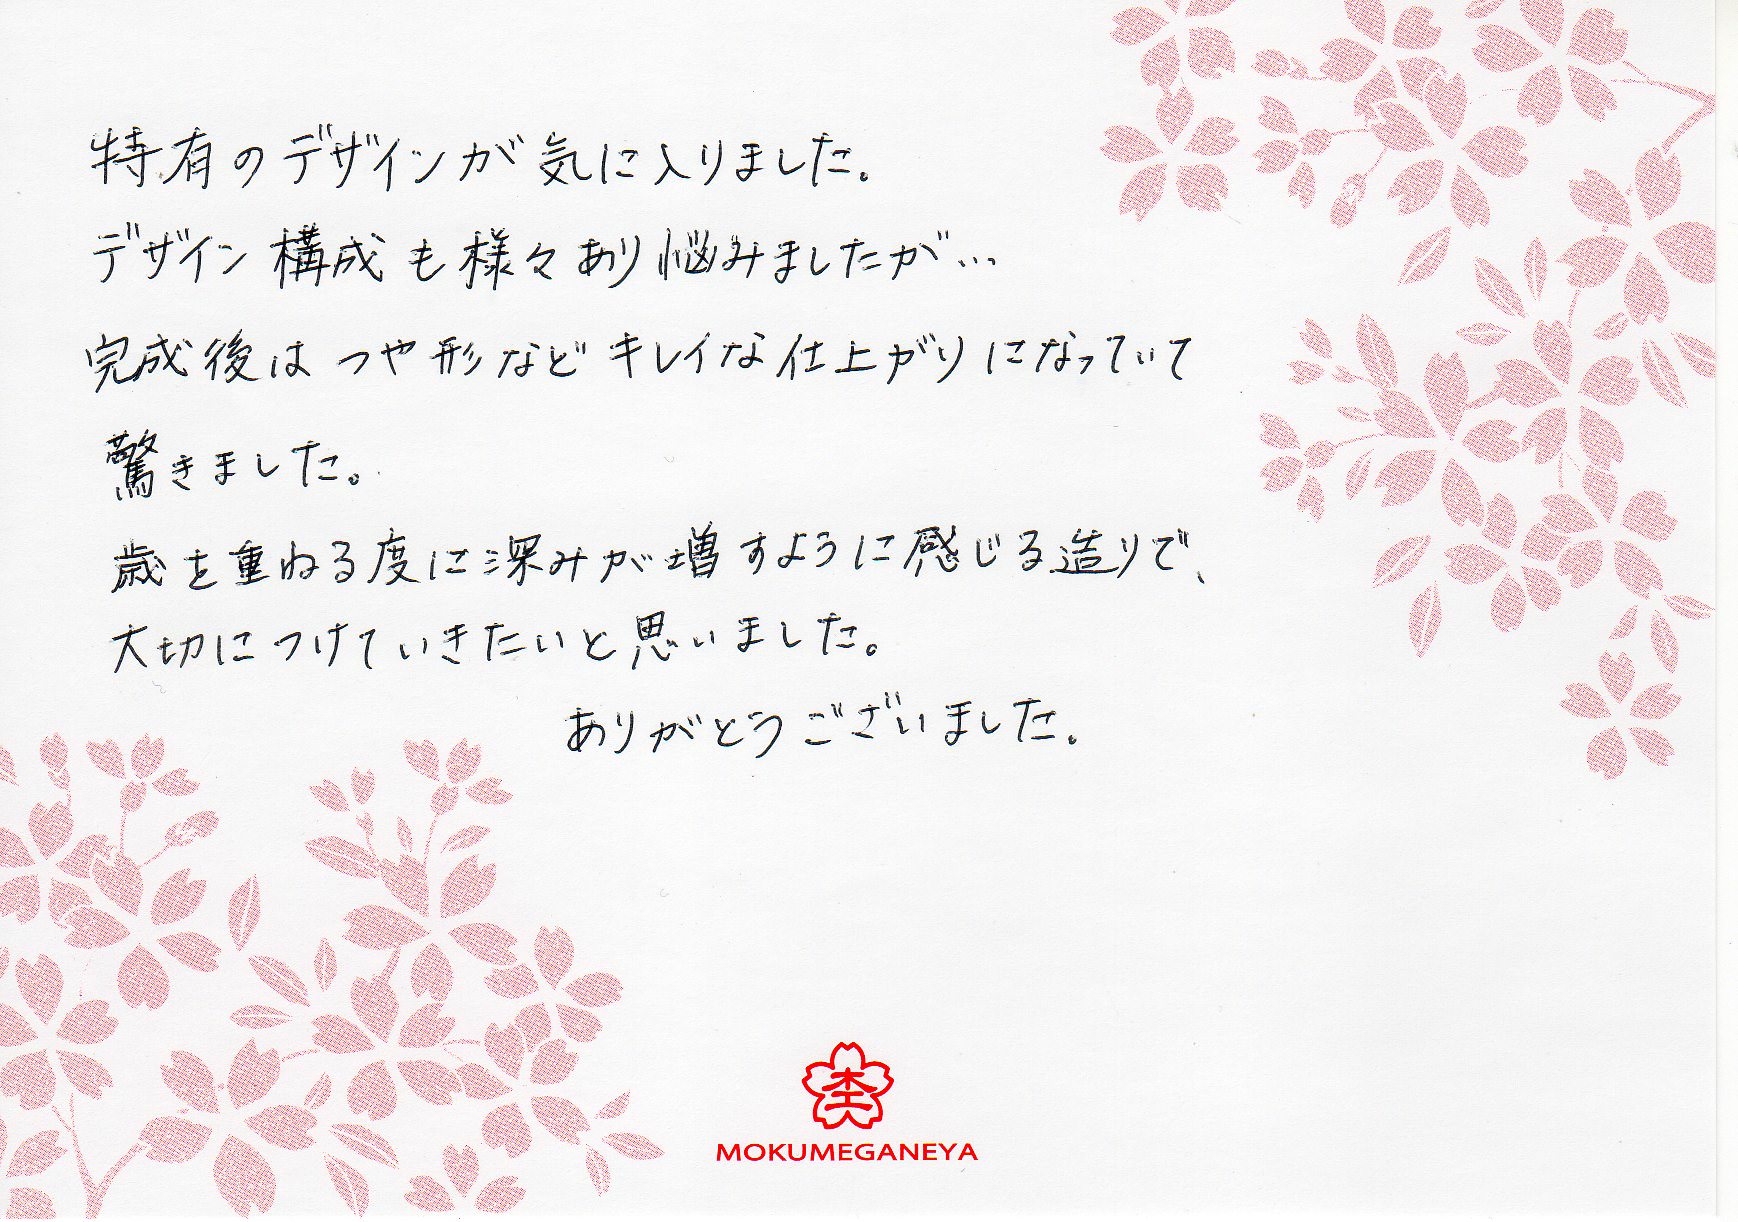 特有のデザインが気に入りました。
デザイン構成も様々あり悩みましたが…
完成後はつや形などキレイな仕上がりになっていて
驚きました。
歳を重ねる度に深みが増すように感じる造りで、
大切につけていきたいと思いました。
ありがとうございました。
MOKUMEGANEYA